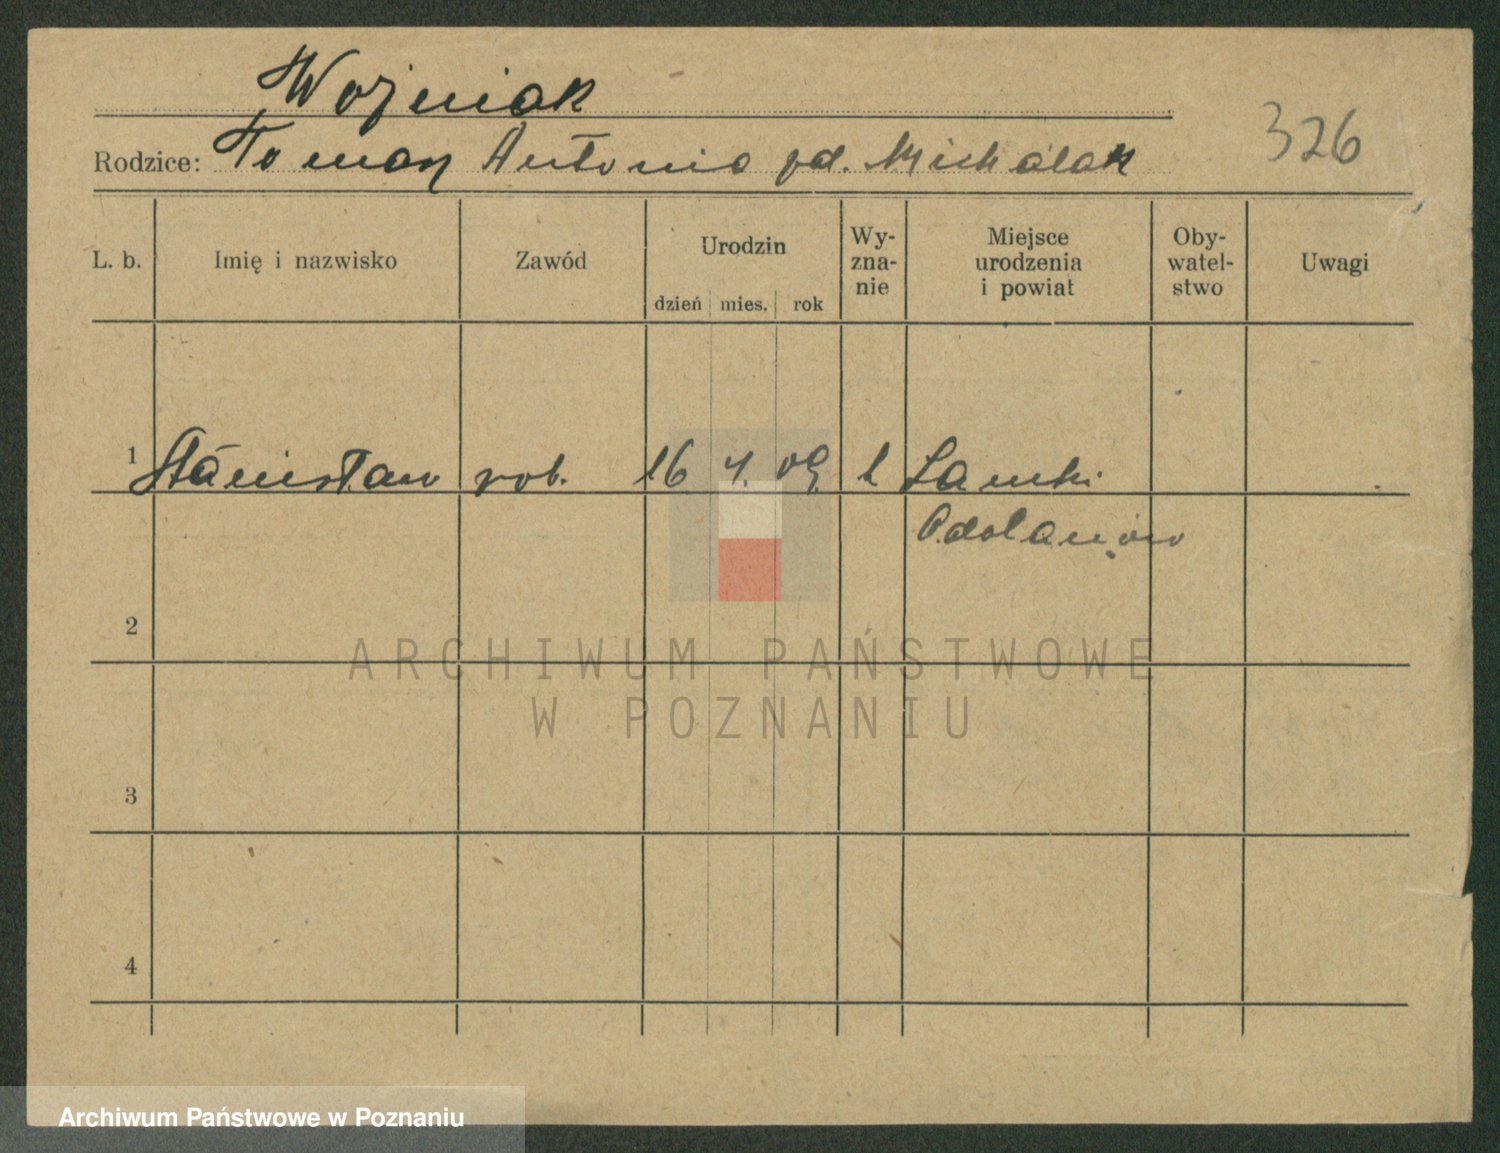 Wojniak
326
Rodzice: Tomasz Antonia zd. Michalak
L. b. Imię i nazwisko Zawód Urodzin dzień mies. rok Wy-zna-nie Miejsce urodzenia i powiat Oby-watel-stwo Uwagi
1 Stanisław rob. 16 4. 09. k Lamki
Odolanów
2
3
4
ARCHIWUM PAŃSTWOWE
W POZNANIU
Archiwum Państwowe w Poznaniu